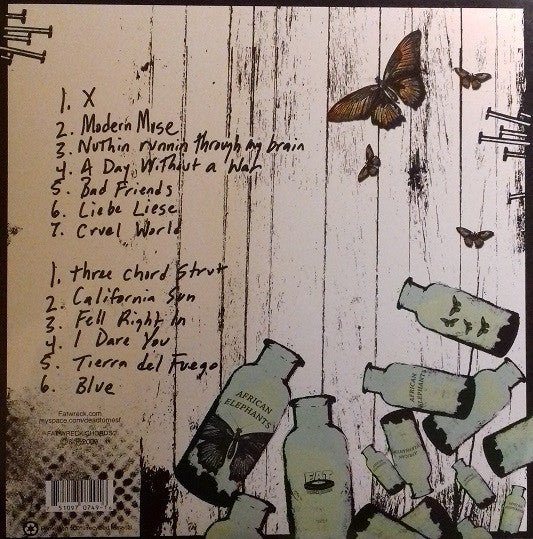 1. X
2. Modern Muse
3. Nuthin runnin through my brain
4. A Day Without a War
5. Bad Friends
6. Liebe Liese
7. Cruel World
1. three chord strut
2. California Sun
3. Fell Right In
4. I Dare You
5. Tierra del Fuego
6. Blue
Fatwreck.com
myspace.com/deadtomesf
FAT WRECK CHORDS
AFRICAN
ELEPHANTS
FAT
AFRICAN
ELEPHANTS
7 51097 0749-1 6